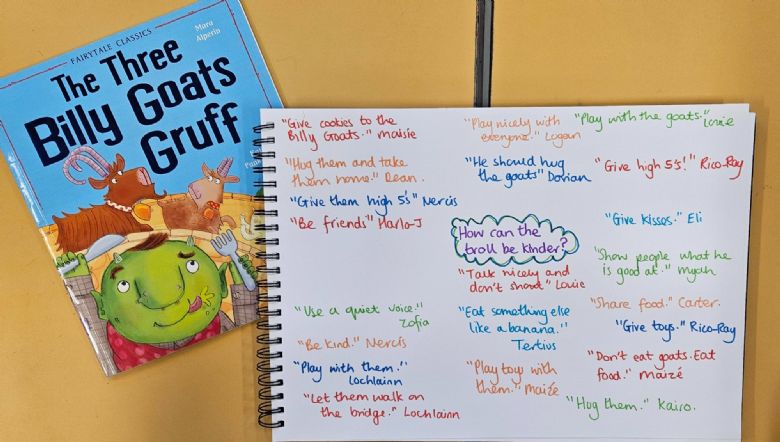 FAIRYTALE CLASSICS
Mara
Alperin
The Three
Billy Goats
Gruff
"Give cookies to the
Billy Goats." Maisie
"Hug them and take
them home." Dean.
"Give them high 5's" Nercís
"Be friends" Harlo-J
"Use a quiet voice."
Zofia
"Be kind." Nercís
"Play with them."
Lochlainn
"Let them walk on
the bridge." Lochlainn
"Play nicely with
everyone." Logan
"He should hug
the goats" Dorian
How can the
troll be kinder?
"Talk nicely and
don't shout" Louie
"Eat something else
like a banana."
Tertius
"Play toys with
them." Maizé
"Play with the goats." Louie
"Give high 5s!" Rico-Ray
"Give kisses." Eli
"Show people what he
is good at." Myah
"Share food." Carter.
"Give toys." Rico-Ray
"Don't eat goats. Eat
food." Maizé
"Hug them." Kairo.